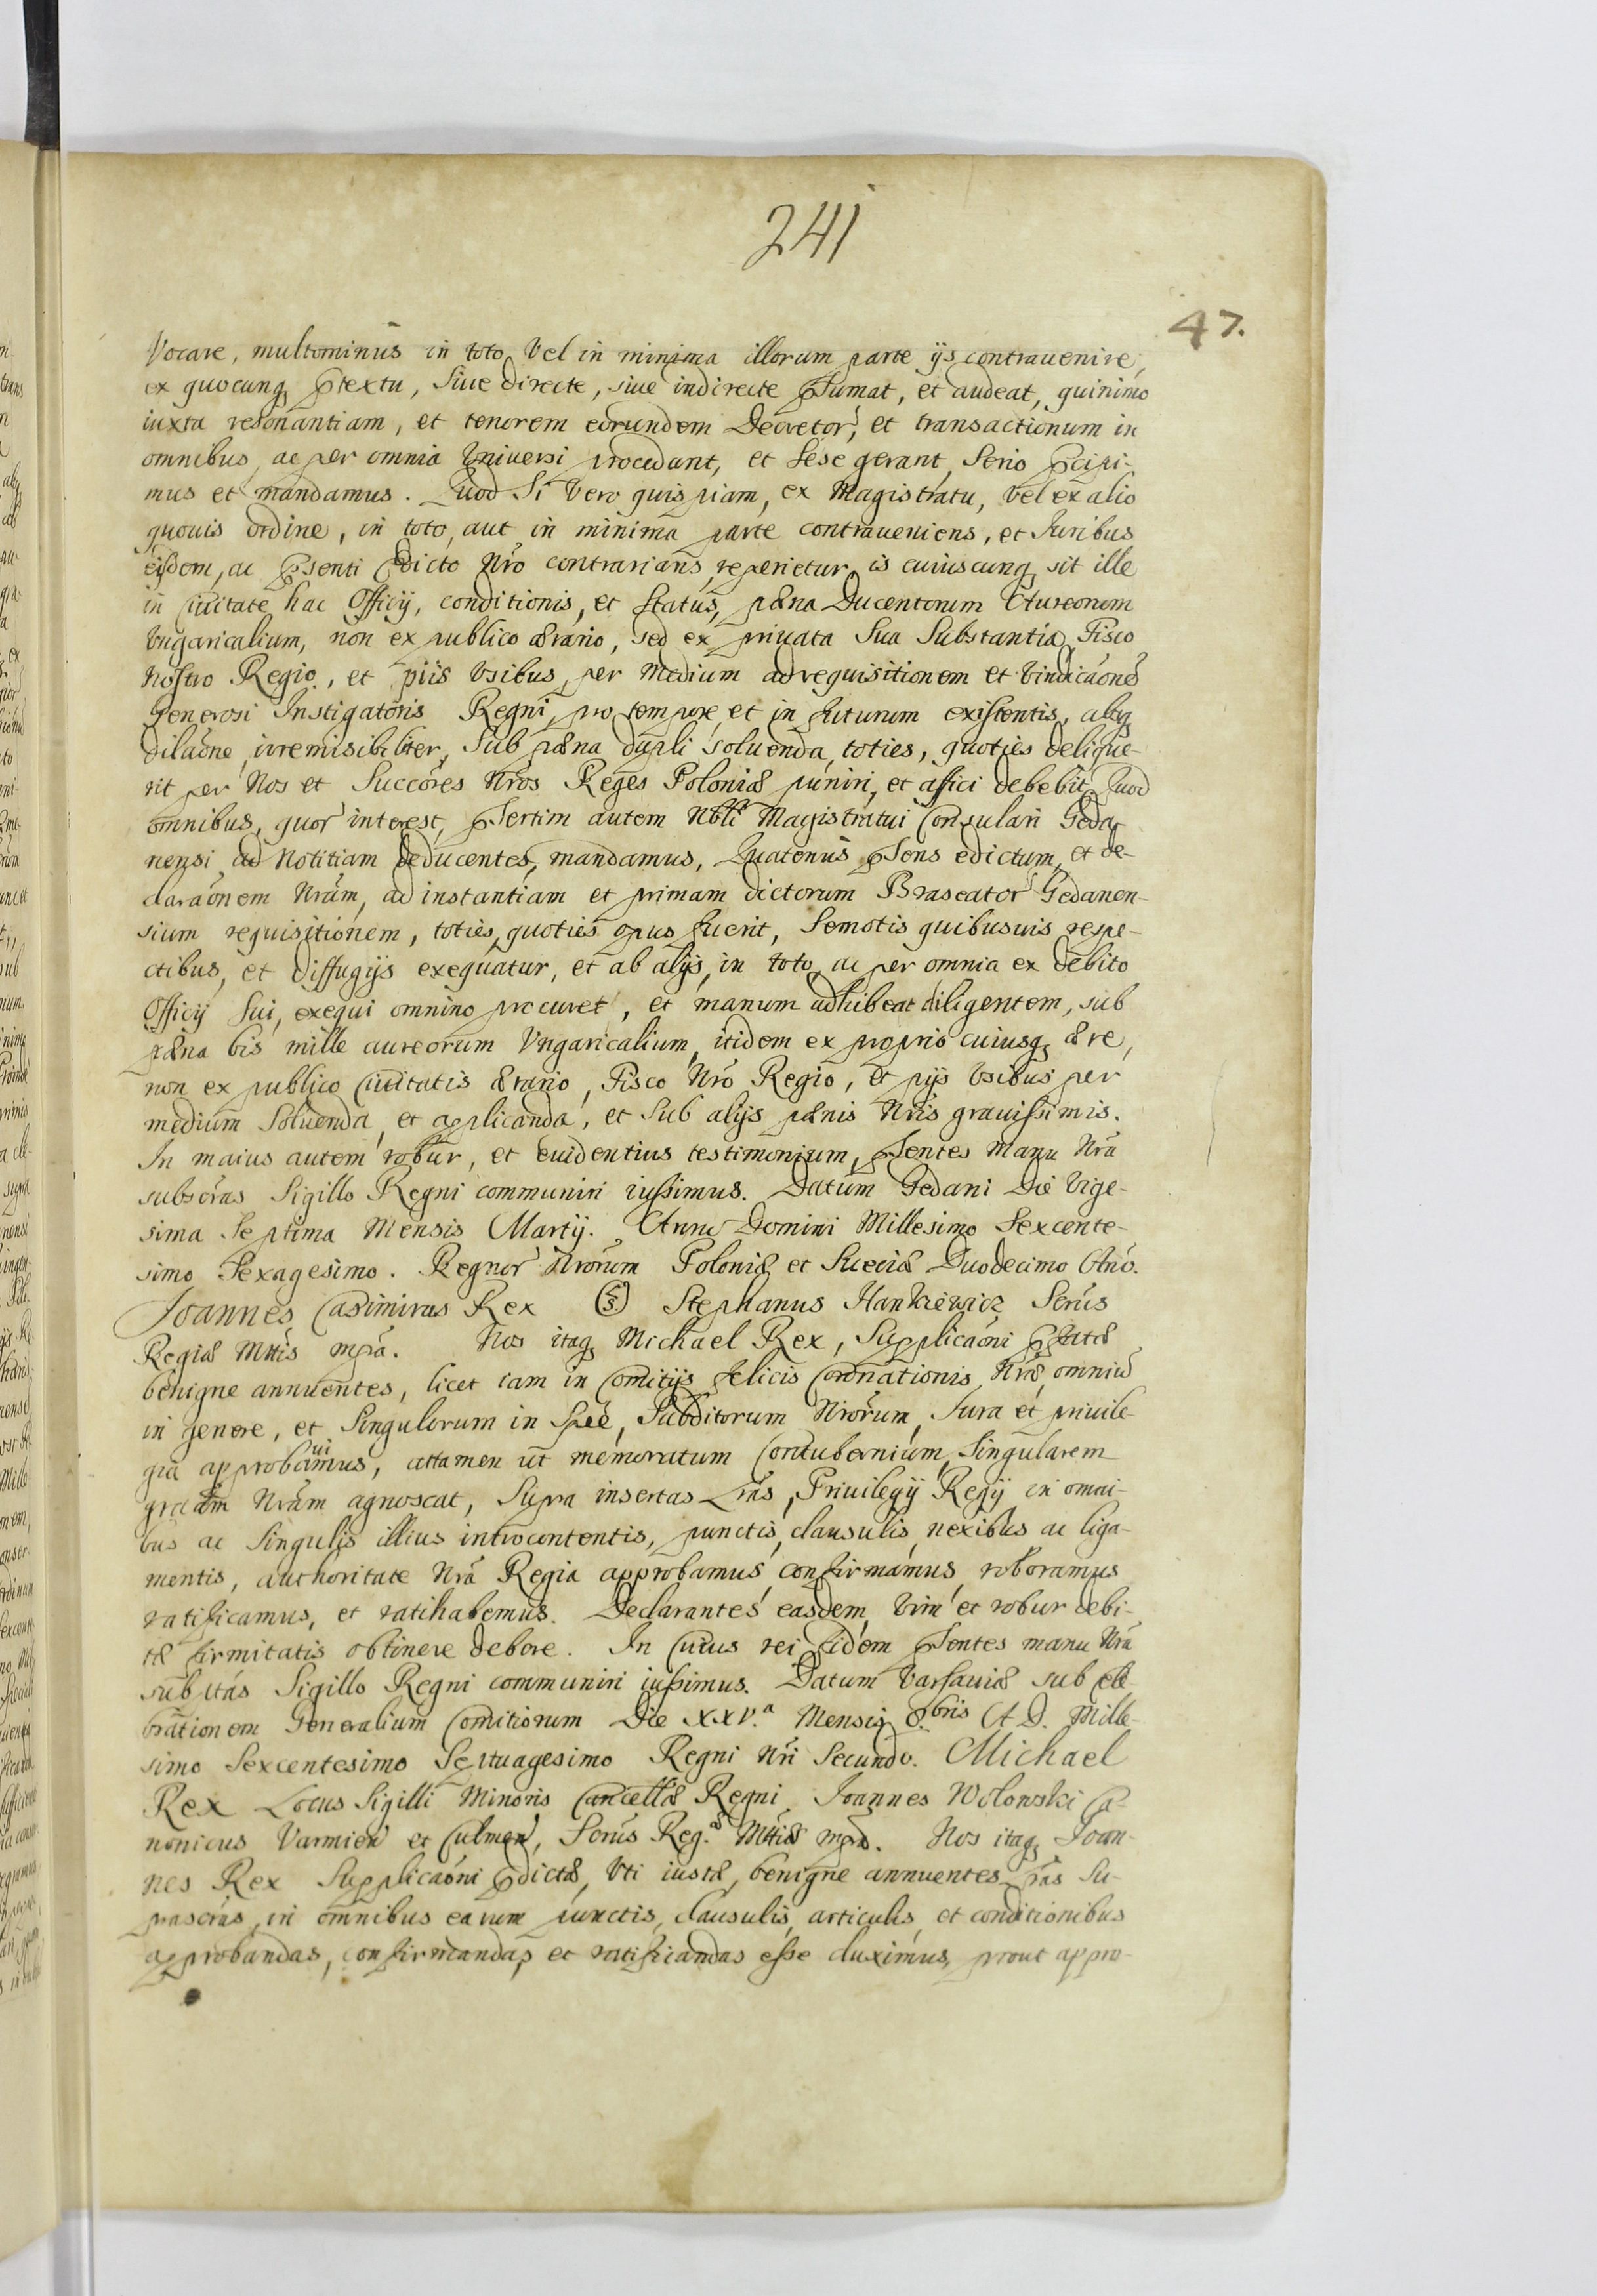 241
47.
Vocare, multominus in toto Vel in minima illorum parte ijs contrauenire,
ex quocunq; Ptextu, Siue directe, siue indirecte PSumat, et audeat, quinimo
iuxta resonantiam, et tenorem eorundem Decretor', et transactionum in
omnibus, ac per omnia Vniuersi procedant, et Sese gerant, Serio Pcipi-
mus et mandamus. Quod Si Vero quispiam, ex Magistratu, Vel ex alio
quouis ordine, in toto, aut in minima parte contraueniens, et Iuribus
eisdem, ac PSenti Edicto Nrõ contrarians, reperietur, is cuiuscunq; sit ille
in Ciuitate hac Officij, conditionis, et Status, pæna Ducentorum Aureorum
Vngaricalium, non ex publico ærario, sed ex priuata Sua Substantia, Fisco
Nostro Regio, et piis Vsibus, per Medium ad requisitionem et Vindicãonẽ
Generosi Instigatoris Regni, pro tempore, et in futurum existentis, absq;
dilaõne, irremisibiliter, Sub pæna dupli soluenda, toties, quoties delique-
rit per Nos et Succõres Nrõs Reges Poloniæ puniri, et affici debebit, Quod
omnibus, quor' interest, PSertim autem Nbli Magistratui Consulari Geda-
nensi, ad Notitiam deducentes, mandamus, Quatenus PSens edictum, et de-
claraõnem Nrãm, ad instantiam et primam dictorum Braseator' Gedanen-
sium requisitionem, toties, quoties opus fuerit, Semotis quibusuis respe-
ctibus, et diffugijs exequatur, et ab alijs, in toto, ac per omnia ex debito
Officij Sui, exequi omnino procuret, et manum adhibeat diligentem, sub
pæna bis mille aureorum Vngaricalium, itidem ex proprio cuiusq; ære,
non ex publico Ciuitatis ærario, Fisco Nrõ Regio, et pijs Vsibus per
medium Soluenda, et applicanda, et Sub alijs pænis Nris grauissimis.
In maius autem robur, et euidentius testimonium, PSentes Manu Nrã
subscrãs Sigillo Regni communiri iussimus. Datum Gedani Die Vige-
sima Septima Mensis Martij. Anno Domini Millesimo Sexcente-
simo Sexagesimo. Regnor' Nrõrum Poloniæ et Sueciæ Duodecimo Año.
Joannes Casimirus Rex (LS) Stephanus Hankiewicz Serũs
Regiæ Mttis mpã. Nos itaq; Michael Rex, Supplicaõni Pfatæ
benigne annuentes, licet iam in Comitijs felicis Coronationis Nræ, omniũ
in genere, et Singulorum in Speẽ, Subditorum Nrõrum, Iura et priuile-
gia approbauimus, attamen ut memoratum Contubernium, Singularem
grãam Nrãm agnoscat, Supra insertas Lrãs, Priuilegij Regij in omni-
bus ac Singulis illius introcontentis, punctis, clausulis, nexibus ac liga-
mentis, authoritate Nrã Regia approbamus, confirmamus, roboramus
ratificamus, et ratihabemus. Declarantes easdem, Vim et robur debi-
tæ firmitatis obtinere debere. In Cuius rei fidem PSentes manu Nrã
sub̃tas Sigillo Regni communiri iussimus. Datum Varsauiæ sub cele-
brationem Generalium Comitiorum Die XXV.ª Mensis 8.bris A. D. Mille-
simo Sexcentesimo Septuagesimo Regni Nri Secundo. Michael
Rex Locus Sigilli Minoris Cancellæ Regni Joannes Wolowski Ca-
nonicus Varmien' et Culmen', Serũs Reg.æ Mttis mpã. Nos itaq; Joan-
nes Rex Supplicaõni Pdictæ, Vti iustæ, benigne annuentes Lrãs Su-
prascrãs, in omnibus earum punctis, clausulis, articulis, et conditionibus
approbandas, confirmandas, et ratificandas esse duximus, prout appro-